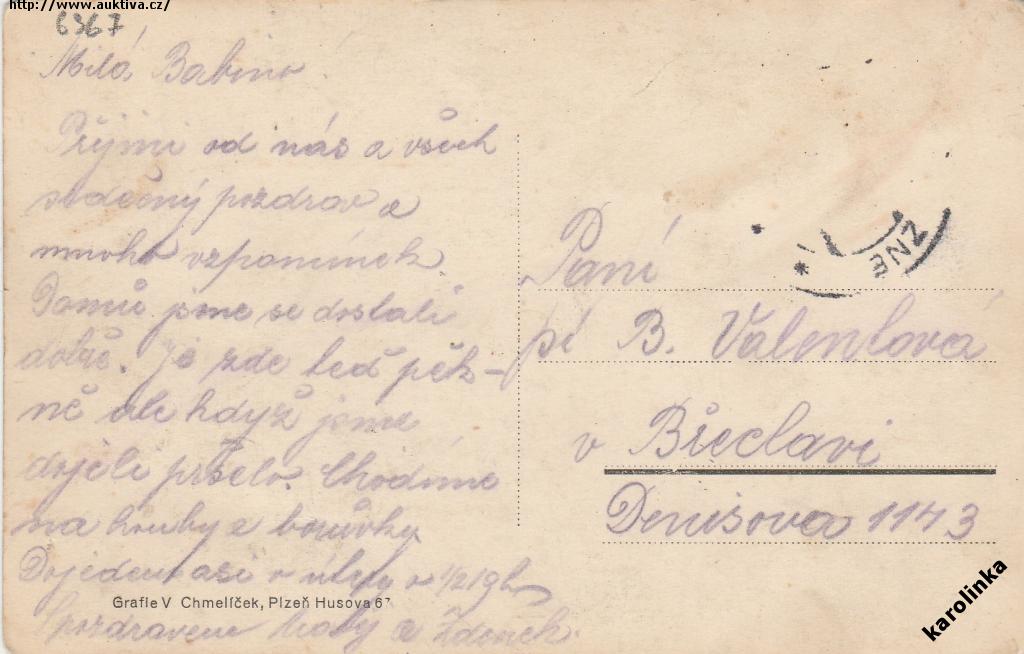 http://www.auktiva.cz/
6367
Milá Babino
Přijmi od nás a všech
srdečný pozdrav a
mnoho vzpomínek
Domů jsme se dostali
dobře. Je zde teď pěk-
ně ale když jsme
dojeli pršelo. Chodíme
na houby a borůvky
Dojedem asi v úterý v 1/2 9h
S pozdravem a Zdeněk.
Grafie V Chmelíček, Plzeň Husova 67
ZNE
Paní
pí B. Valentová
v Břeclavi
Denisova 1143
karolinka